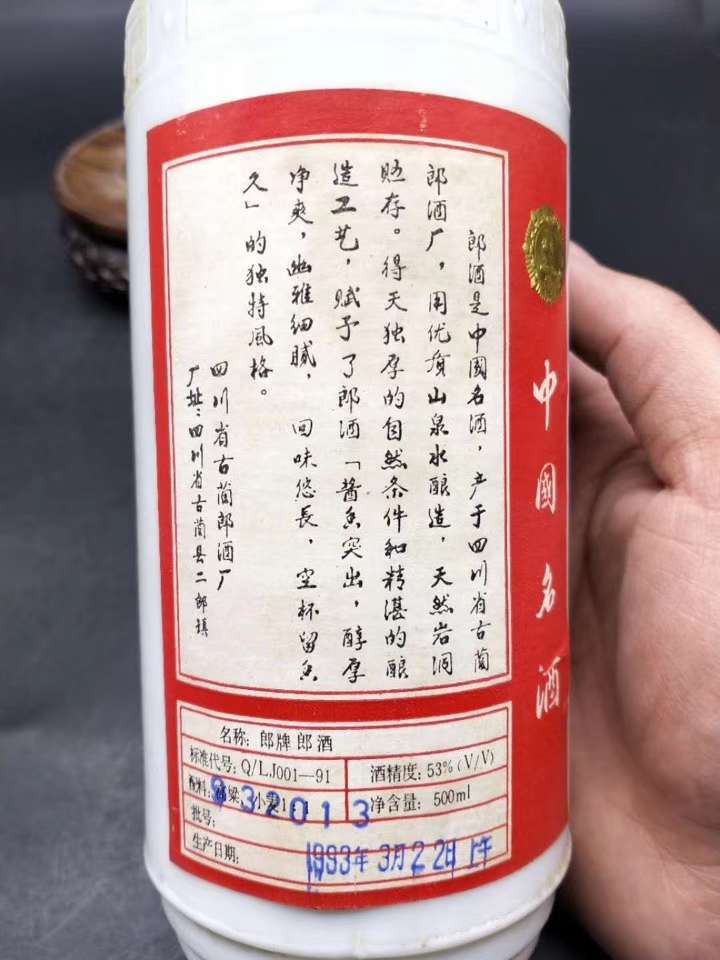 中國名酒
郎酒是中國名酒，产于四川省古蔺
郎酒厂，用优质山泉水酿造，天然岩洞
贮存。得天独厚的自然条件和精湛的酿
造工艺，赋予了郎酒「酱香突出，醇厚
净爽，幽雅细腻，回味悠長，空杯留香
久」的独特风格。
四川省古蔺郎酒厂
厂址：四川省古蔺县二郎镇
名称: 郎牌郎酒
标准代号: Q/LJ001—91
酒精度: 53%(V/V)
配料: 高粱、小麦
净含量: 500ml
批号: 932013
生产日期: 1993年3月22日上午